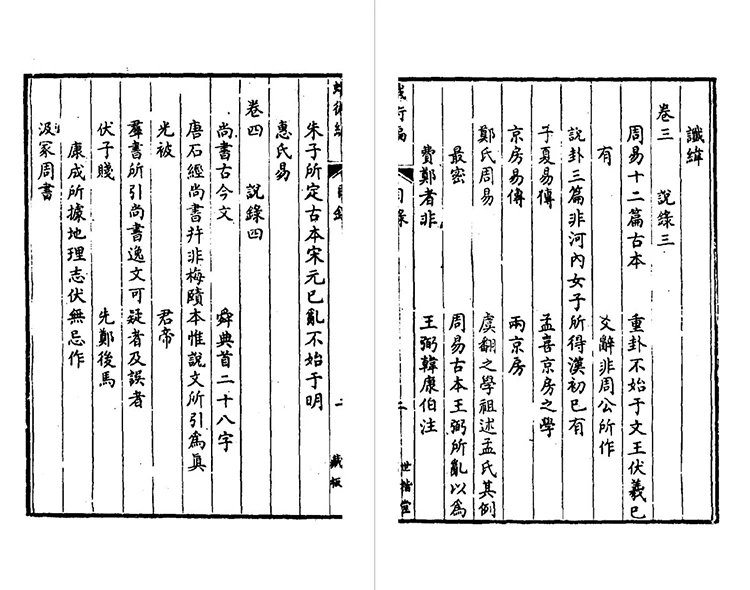 讖緯
卷三 說錄三
周易十二篇古本 重卦不始于文王伏羲已
有 爻辭非周公所作
說卦三篇非河內女子所得漢初已有
子夏易傳 孟喜京房之學
京房易傳 兩京房
鄭氏周易 虞翻之學祖述孟氏其例
最密 周易古本王弼所亂以為
費鄭者非 王弼韓康伯注
蛾術編 目錄 二 世楷堂
蛾術編 目錄 二 藏板
朱子所定古本宋元已亂不始于明
惠氏易
卷四 說錄四
尚書古今文 舜典首二十八字
唐石經尚書幷非梅賾本惟說文所引爲眞
光被 君帝
羣書所引尚書逸文可疑者及誤者
伏子賤 先鄭後馬
康成所據地理志伏無忌作
汲冢周書